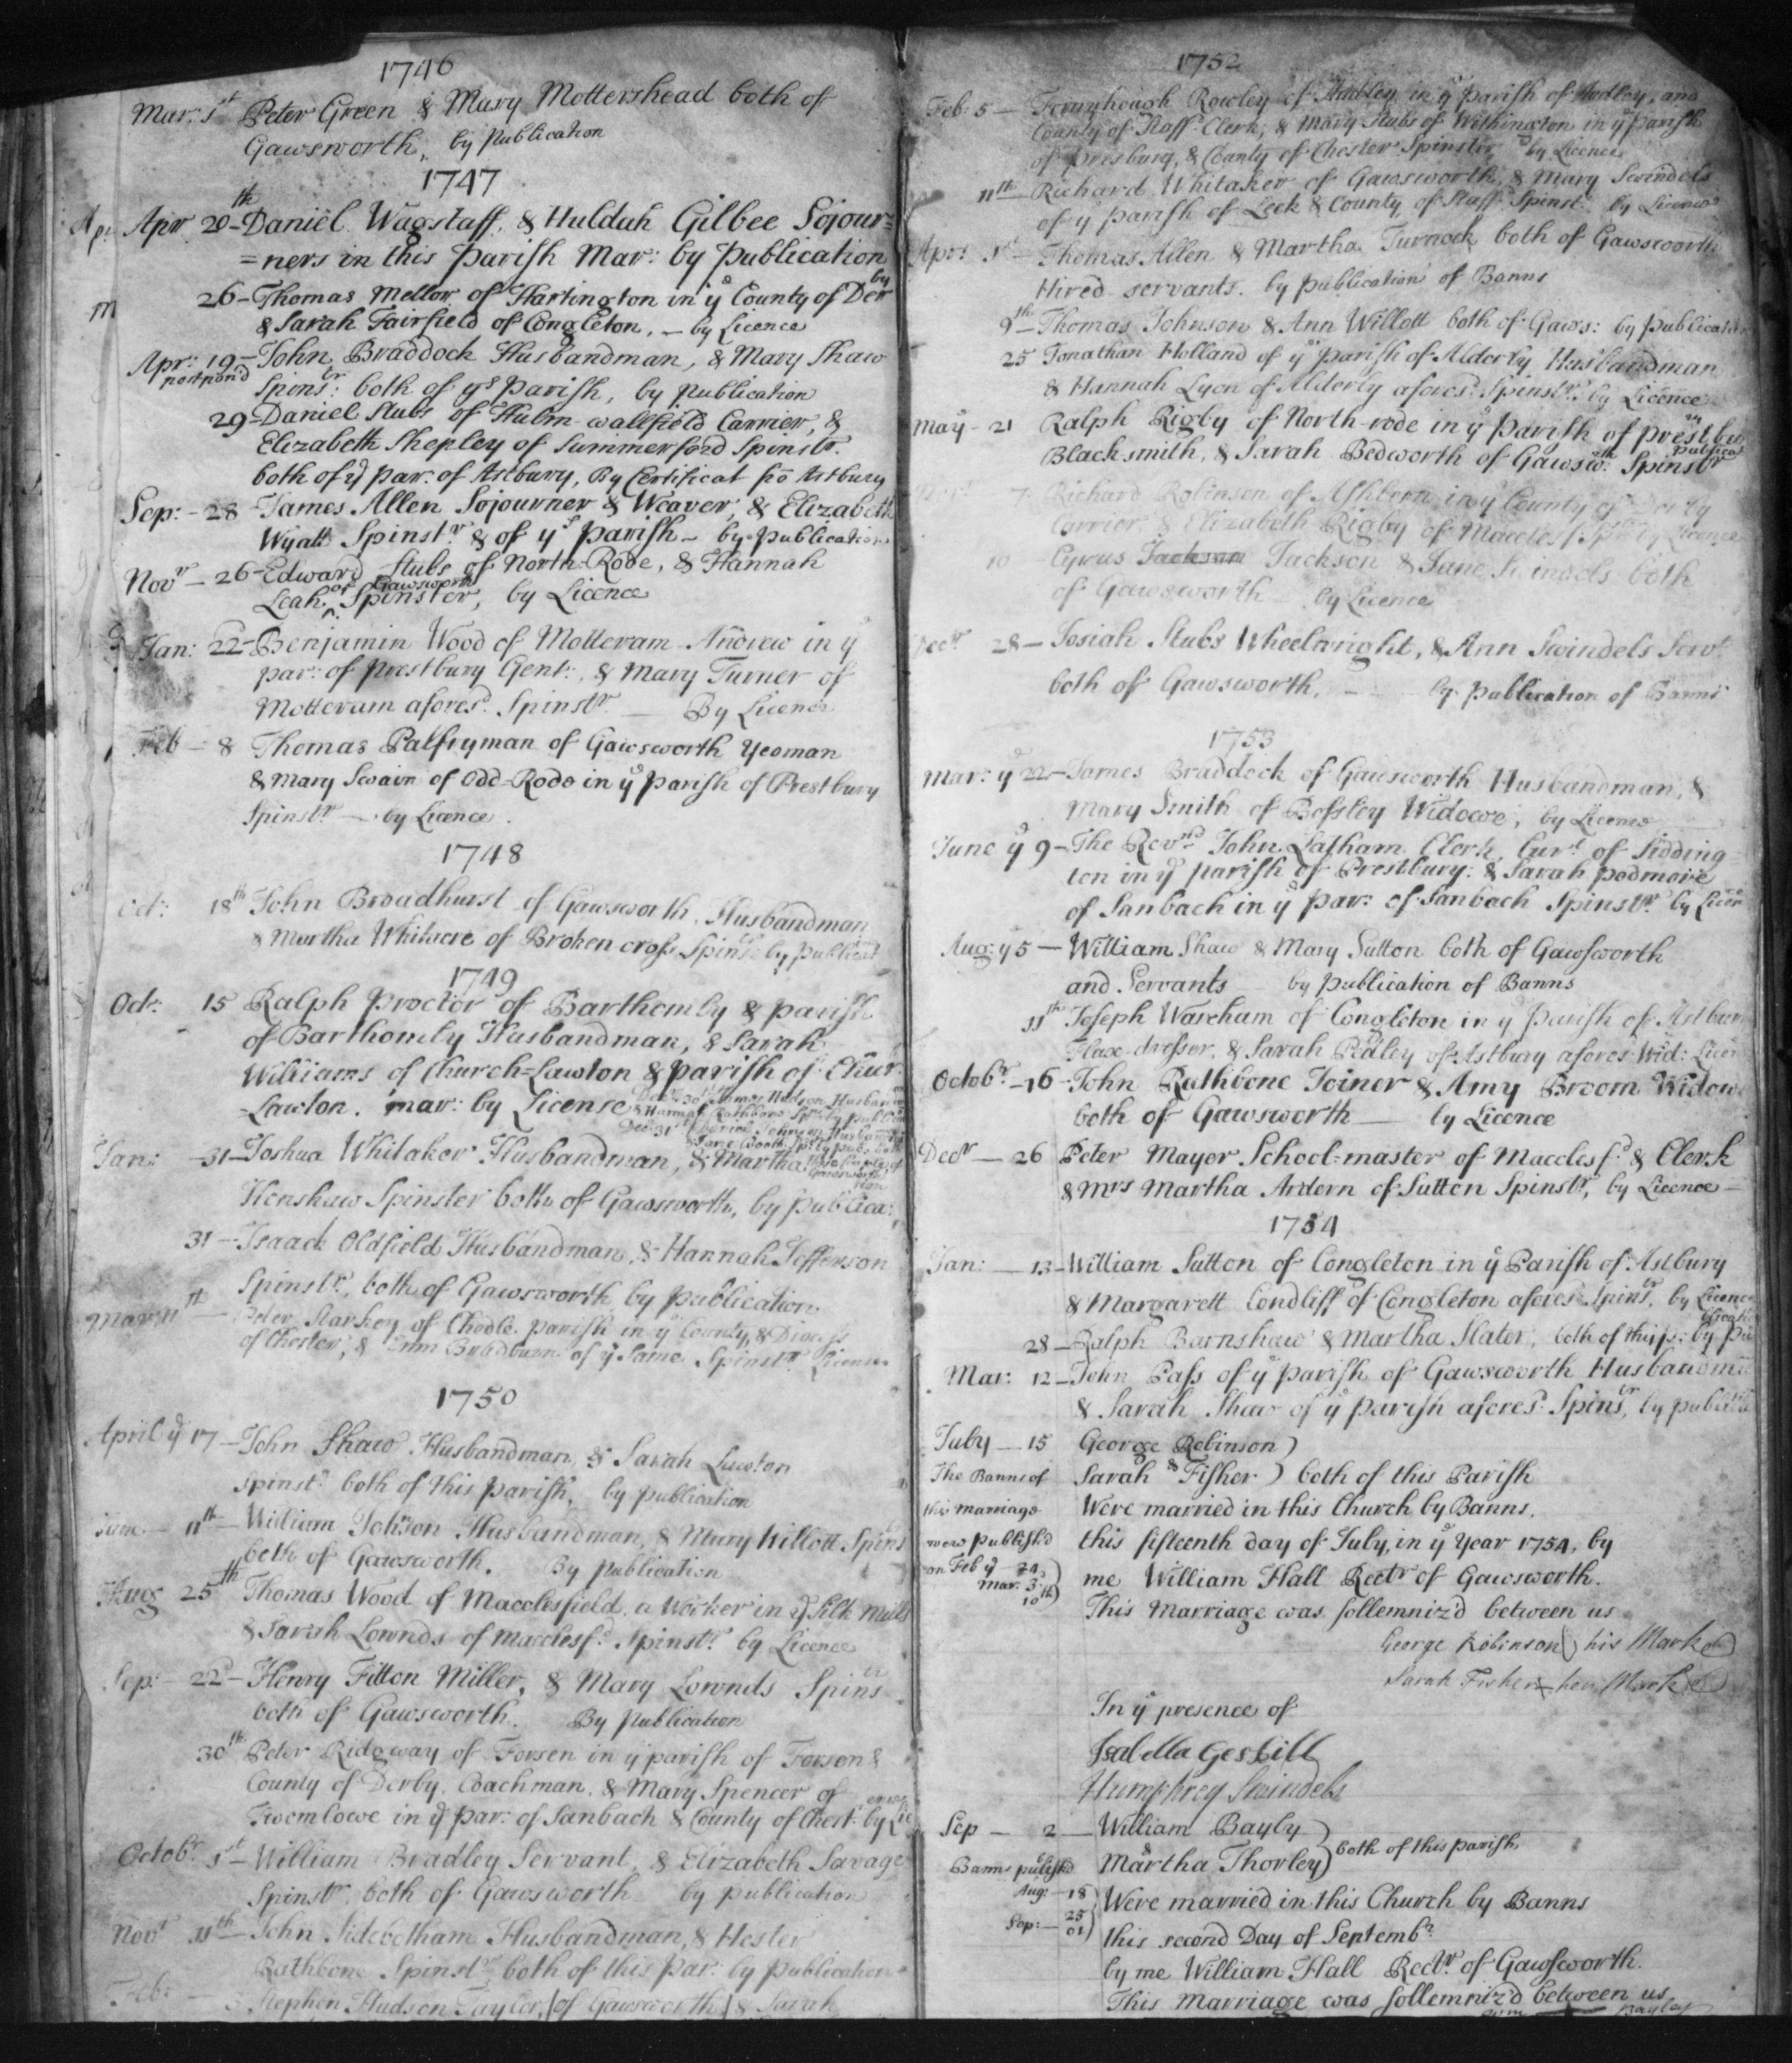 1746
Mar: 1st Peter Green & Mary Mottershead both of
Gawsworth, by Publication
1747
Apr 20th Daniel Wagstaff, & Huldah Gilbee Sojour=
=ners in this Parish Mar: by Publication
26 - Thomas Mellor of Hartington in ye County of Derby
& Sarah Fairfield of Congleton, - by Licence
Apr: 19 - John Braddock Husbandman, & Mary Shaw
postpon'd Spinstr: both of ys Parish, by Publication
29 - Daniel Stubs of Hulm-wallfield Carrier, &
Elizabeth Shepley of Summerford Spinstr.
both of ye par: of Astbury, By Certificat fro Astbury
Sep: - 28 - James Allen Sojourner & Weaver, & Elizabeth
Wyatt Spinstr & of ys Parish - by Publication
Novr - 26 - Edward Stubs of North-Rode, & Hannah
Leah of Gawsworth Spinster, by Licence
Jan: 22d - Benjamin Wood of Motteram-Andrew in ye
par: of Prestbury Gent:, & Mary Turner of
Motteram afores.d Spinstr - By Licence
Feb - 8 Thomas Palfryman of Gawsworth Yeoman
& Mary Swain of Odd-Rode in ye Parish of Prestbury
Spinstr - by Licence.
1748
Oct: 18th John Broadhurst of Gawsworth, Husbandman
& Martha of Broken cross Spinstr by Publicat
1749
Oct: 15 Ralph Proctor of Barthomly & parish
of Barthomly Husbandman, & Sarah
Williams of Church=Lawton & parish of Chur:
-Lawton. mar: by License
Dec: 30th James Hudson Husbandman
& Hannah Rathbone Spr by Public
Dec: 31st Johnson Husbandm
& Jane Booth Spr by Pub: both
of Gawsworth
Jan: - 31 - Joshua Whitaker Husbandman, & Martha
Henshaw Spinster both of Gawsworth, by Publica:tion
31 - Isaack Oldfield Husbandman, & Hannah Jefferson
Spinstr, both of Gawsworth by Publication
Mar: 11th - Peter Starkey of Chedle parish in ye County, & Diocess
of Chester, & Ann Bradburn of ye Same Spinstr Licence
1750
April ye 17 - John Shaw Husbandman, & Sarah Lawton
spinstr both of this parish, by publication
June - 11th - William Johnson Husbandman, & Mary Willott Spinstr
both of Gawsworth. By Publication
Aug 25th Thomas Wood of Macclesfield, a Worker in ye Silk Mills
& Sarah Lownds of Macclesf.d Spinstr by Licence
Sep: - 22d - Henry Fitton Miller, & Mary Lownds Spinstr
both of Gawsworth. By Publication
30th Peter Ridgway of Forsen in ye parish of Forson &
County of Derby, Coachman, & Mary Spencer of
Twemlowe in ye Par: of Sanbach & County of Chest: by Licence
Octobr 1st - William Bradley Servant, & Elizabeth Savage
Spinstr, both of Gawsworth by publication
Novr 11th - John Sidebotham Husbandman, & Hester
Rathbone Spinstr, both of this Par: by Publication
Feb: - 3 Stephen Hudson Taylor, (of Gawsworth) & Sarah
1752
Feb: 5 - Fernyhough Rowley of in ye Parish of , and
County of Staff.d Clerk, & Mary Stubs of Withington in ye Parish
of Presbury, & County of Chester Spinster by Licence
11th - Richard Whitaker of Gawsworth, & Mary Swindels
of ye Parish of Leek & County of Staff.d Spinst: by Licence
Apr: 1st - Thomas Allen & Martha Turnock both of Gawsworth
Hired-servants. by publication of Banns
9th - Thomas Johnson & Ann Willott both of Gaws: by Publication
25 Jonathan Holland of ye Parish of Alderly Husbandman
& Hannah Lyon of Alderly afores.d Spinstr: by Licence
May - 21 Ralph Rigby of North-rode in ye Parish of Prestbury
Blacksmith, & Sarah Bedworth of Gawswth. Spinstr Publicat
7 Richard Robinson of Ashborn in ye County of Derby
Carrier, & Elizabeth Rigby of Macclesf. Spstr by Licence
10 Cyrus Jackson Jackson & Jane Swindels both
of Gawsworth - by Licence
Decr 28 - Josiah Stubs Wheelwright, & Ann Swindels Servt.
both of Gawsworth, - by publication of Banns
1753
Mar: ye 22 - James Braddock of Gawsworth Husbandman, &
Mary Smith of Bossley Widowe, by Licence
June ye 9 - The Revnd John Latham Clerk, Curt of Sidding=
ton in ye parish of Prestbury: & Sarah Podmore
of Sanbach in ye Par: of Sanbach Spinstr by Licen
Aug: ye 5 - William Shaw & Mary Sutton both of Gawsworth
and Servants - by Publication of Banns
11th Joseph Wareham of Congleton in ye Parish of Astbury
Flax-dresser, & Sarah Pedley of Astbury afores: Wid: Licen
Octobr - 16 - John Rathbone Joiner & Amy Broom Widow
both of Gawsworth - by Licence
Decr - 26 Peter Mayer School-master of Macclesf.d & Clerk
& Mrs Martha Ardern of Sutton Spinstr, by Licence -
1754
Jan: - 13 - William Sutton of Congleton in ye Parish of Astbury
& Margarett Condliff of Congleton afores.d Spinstr. by Licence
28 - Ralph Barnshaw & Martha Slater, both of this p: by Publicati
Mar: 12 - John Pass of ye parish of Gawsworth Husbandman
& Sarah Shaw of ye parish afores.d Spinstr, by publicat
July - 15 George Robinson )
The Banns of Sarah & Fisher ) both of this Parish
this marriage Were married in this Church by Banns,
were Publish'd this fifteenth day of July, in ye Year 1754, by
on Feb ye 24, me William Hall Rectr of Gawsworth.
Mar: 3d
10th) This Marriage was sollemniz'd between us
George Robinson his Mark
Sarah Fisher x her Mark
In ye presence of
Isabella Gesbill
Humphrey Swindels
Sep - 2 - William Bayly )
Banns publish'd Martha & Thorley ) both of this parish
Aug: - 18 Were married in this Church by Banns
25
Sep: - 01) this second Day of Septembr
by me William Hall Rectr of Gawsworth.
This Marriage was sollemniz'd between us
Wm Bayley